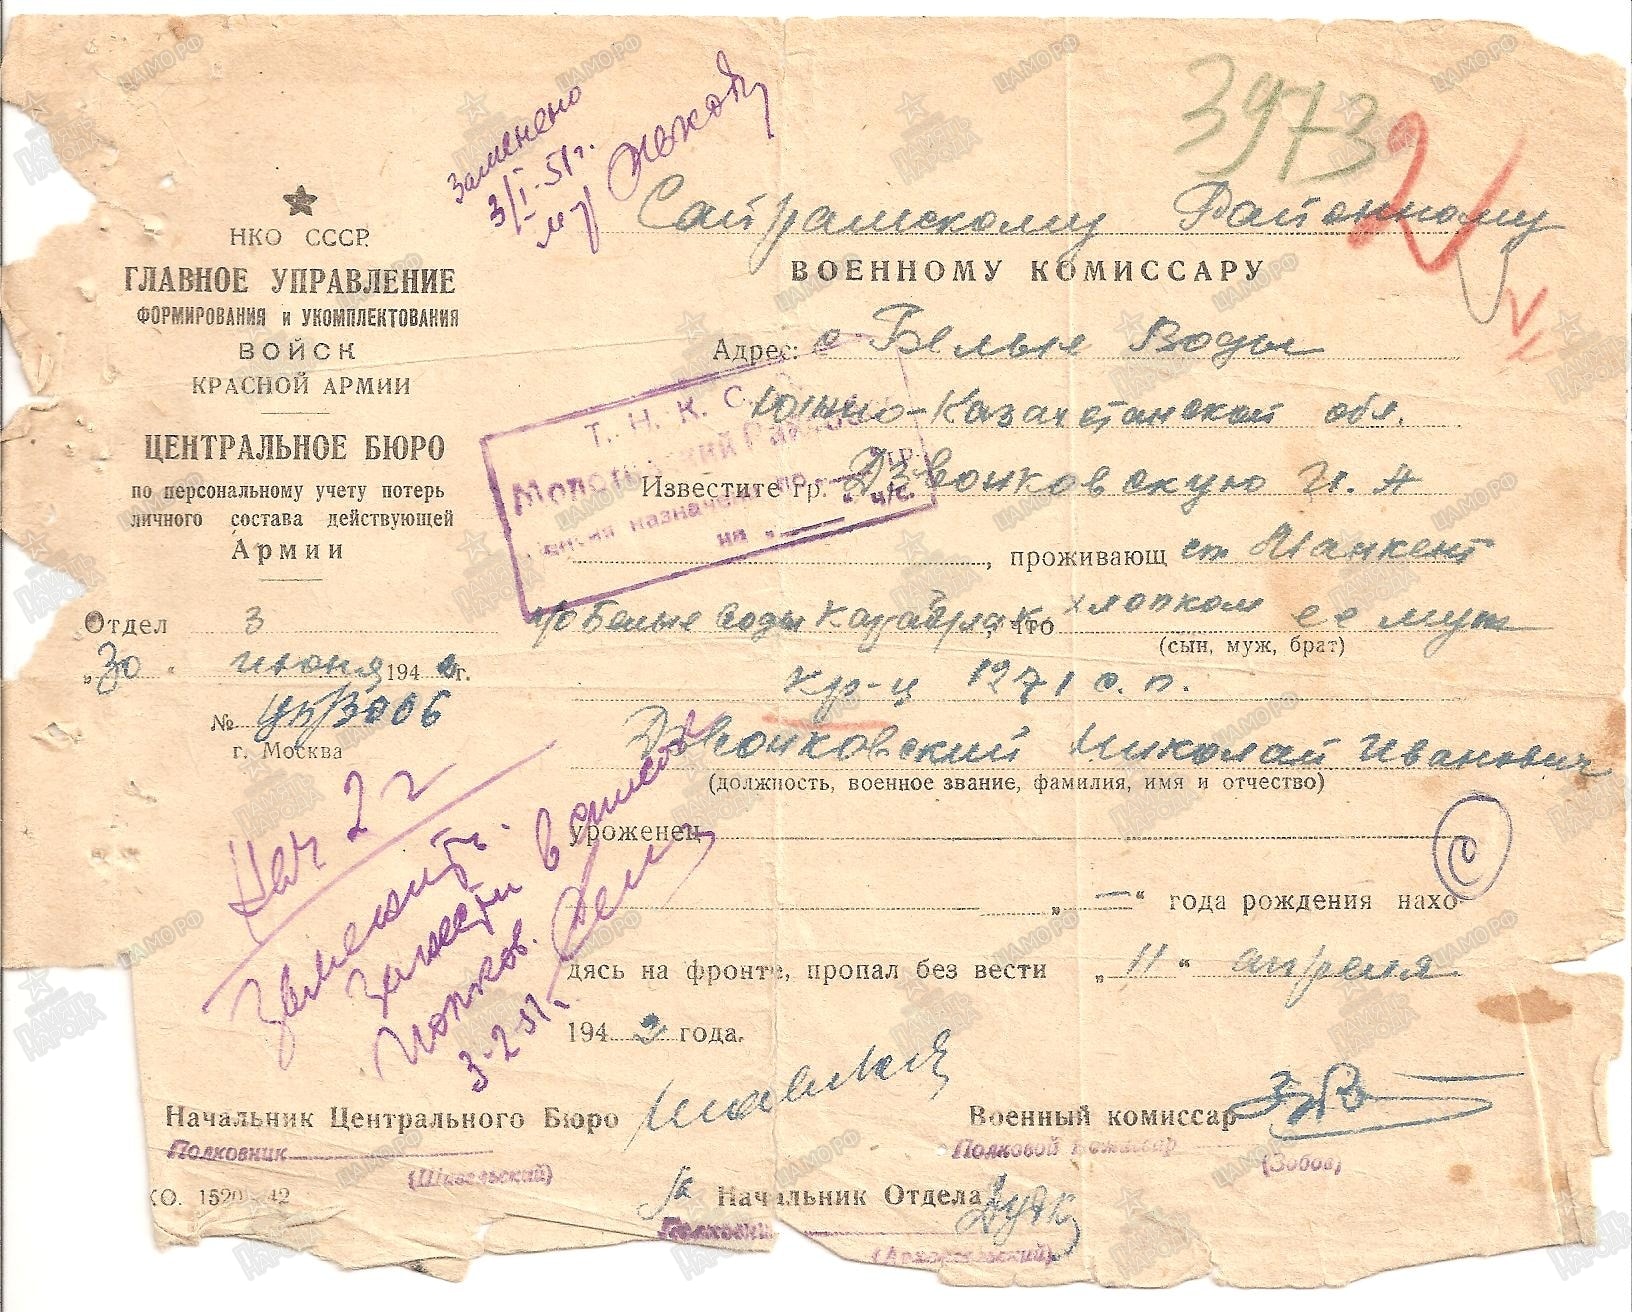 Заменено
3/I-51г.
3973
НКО СССР
ГЛАВНОЕ УПРАВЛЕНИЕ
ФОРМИРОВАНИЯ и УКОМПЛЕКТОВАНИЯ
ВОЙСК
КРАСНОЙ АРМИИ
ЦЕНТРАЛЬНОЕ БЮРО
по персональному учету потерь
личного состава действующей
Армии
Отдел 3
„30 " июня 1942г.
№ цб/3006
г. Москва
Сайрамскому Районному
ВОЕННОМУ КОМИССАРУ
Адрес: с Белые Воды
Южно-Казахстанской обл.
Известите гр. Дзвонковскую И. А
, проживающ ст Манкент
р/о Белые воды Карабулак хлопком что ее муж
(сын, муж, брат)
кр-ц 1271 с. п.
Дзвонковский Николай Иванович
(должность, военное звание, фамилия, имя и отчество)
уроженец
„ — " года рождения нахо-
дясь на фронте, пропал без вести „ 11 " апреля
1942 года.
Т. Н. К. С. О.
Молотовский Рай
пенсия назначена по
на
Нач 2 ч
Заменить.
Занести в список
3-2-51г.
С
Начальник Центрального Бюро
Полковник
(Шавельский)
Военный комиссар
Полковой Комиссар
(Зобов)
КО. 1520 42
Начальник Отдела
Полковник
ПАМЯТЬ НАРОДА
ЦАМО РФ